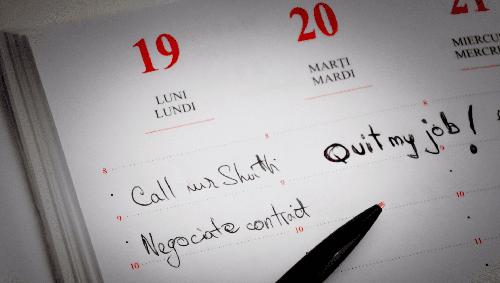 19
20
21
LUNI
LUNDI
MARȚI
MARDI
MIERCU
MERCRE
8
8
8
Call mr
Quit my job!
9
9
9
Negociate contract
10
10
10
11